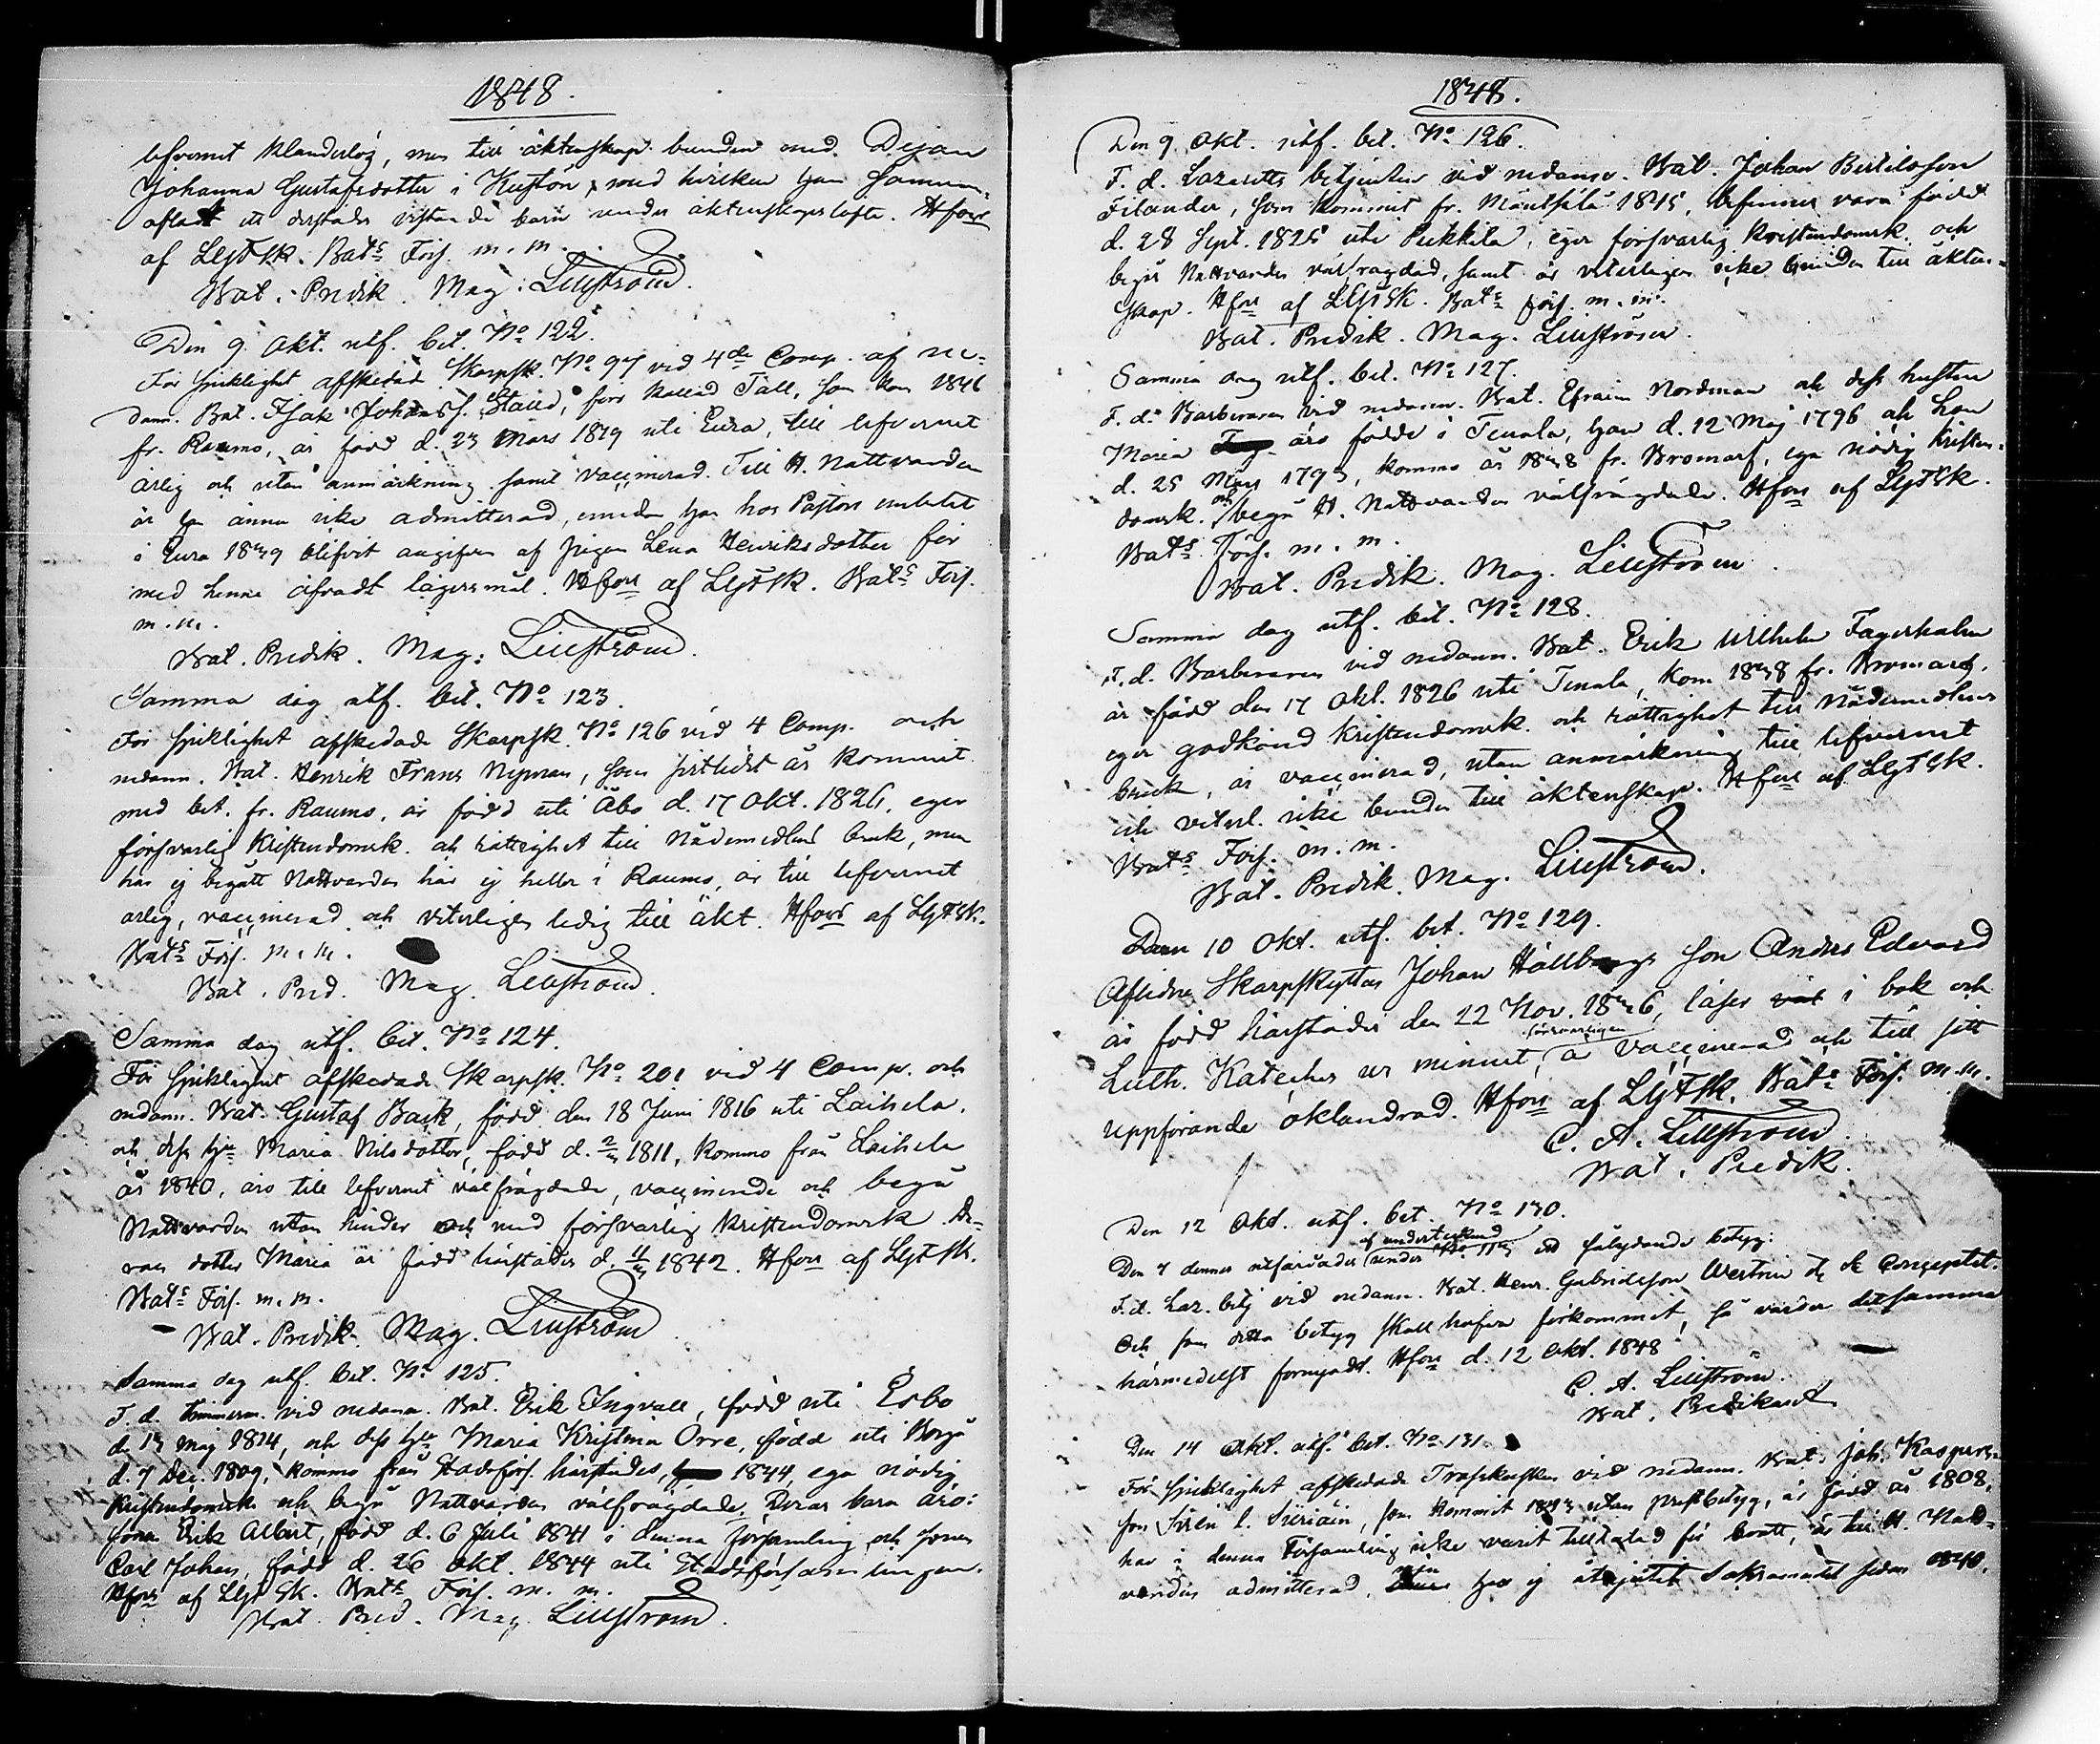 1848.
lefvernet klanderlös, men till äktenskap bunden med Dejan
Johanna Gustafsdotter i Kustön, med hvilken han samman-
aflat ett derstädes vistande barn under äktenskapslöfte. Hfors
af Lgf Fsk. Bats Förs. m. m.
Bat. Predik. Mag. Lillström.
Den 9 Okt. utf. bet. No 122.
För sjuklighet afskedade Skarpsk. No 97 vid 4de Comp. af ne-
dann. Bat. Isak Johans s. Ståled, förr kallad Tall, som kom 1846
fr. Raumo, är född d. 23 Mars 1819 uti Eura, till lefvernet
ärlig och utan anmärkning samt vaccinerad. Till H. Nattvarden
är han ännu icke admitterad, emedan han hos Pastors embetet
i Eura 1839 blifvit angifven af pigan Lena Henriksdotter för
med henne öfvadt lägersmål. Hfors af Lgf Fsk. Bats Förs.
m. m.
Bat. Predik. Mag. Lillström.
Samma dag utf. bet. No 123.
För sjuklighet afskedade Skarpsk. No 126 vid 4 Comp. och
nedann. Bat. Henrik Frans Nyman, som sistlidet år kommit
med bet. fr. Raumo, är född uti Åbo d. 17 Okt. 1826, eger
försvarlig Kristendomsk. och rättighet till Nådemedlens bruk, men
har ej begått Nattvarden här ej heller i Raumo, är till lefvernet
ärlig, vaccinerad och veterligen ledig till äkt. Hfors af Lgf Fsk.
Bats Förs. m. m.
Bat. Pred. Mag. Lillström.
Samma dag utf. bet. No 124.
För sjuklighet afskedade Skarpsk. No 201 vid 4 Comp. och
nedann. Bat. Gustaf Back, född den 18 Juni 1816 uti Laihela,
och dess hju Maria Nilsdotter, född d. 1811, kommo från Laihela
år 1840, äro till lefvernet välfrägdade, vaccinerade och begå
Nattvarden utan hinder och med försvarlig kristendomsk. De-
ras dotter Maria är född härstädes d. 1842. Hfors af Lgf Fsk.
Bats Förs. m. m.
Bat. Predik. Mag. Lillström
Samma dag utf. bet. No 125.
F. d. timmerm. vid nedann. Bat. Erik Ingvall, född uti Esbo
d. 13 maj 1814, och dess hju Maria Kristina Orre, född uti Borgå
d. 7 Dec. 1809, kommo från Stadsförs. härstädes, 1844, ega nödig
Kristendomsk. och begå Nattvarden välfrägdade. Deras barn äro:
sonen Erik Albert, född d. 6 Juli 1841 i denna församling och sonen
Carl Johan, född d. 26 Okt. 1844 uti Stadsförsamlingen.
Hfors af Lgf Fsk. Bats Förs. m. m.
Bat. Pred. Mag. Lillström.
1848.
Den 9 Okt. utf. bet. No 126.
F. d. Lazaretts betjenten vid nedann. Bat. Johan Bertilsson
Filander, som kommit fr. Mäntsälä 1845, befinnes vara född
d. 28 Sept. 1825 uti Pukkila, eger försvarlig kristendomsk. och
begår Nattvarden välfrägdad, samt är veterligen icke bunden till äkten-
skap. Hfors af Lgf Fsk. Bats förs. m. m.
Bat. Predik. Mag. Lillström.
Samma dag utf. bet. No 127.
F. d. Barberaren vid nedann. Bat. Efraim Nordman och dess hustru
Maria äro födde i Tenala, han d. 12 Maj 1796 och hon
d. 25 Mars 1793, kommo år 1838 fr. Bromarf, ega nödig kristen-
domsk. och begå H. Nattvarden välfrägdade. Hfors af Lgf Fsk.
Bats Förs. m. m.
Bat. Predik. Mag. Lillström.
Samma dag utf. bet. No 128.
F. d. Barberaren vid nedann. Bat. Erik Wilhelm Fagerholm
är född den 17 Okt. 1826 uti Tenala, kom 1838 fr. Bromarf,
eger godkänd kristendomsk. och rättighet till Nådemedlens
bruk, är vaccinerad, utan anmärkning till lefvernet
och veterl. icke bunden till äktenskap. Hfors af Lgf Fsk.
Bats Förs. m. m.
Bat. Predik. Mag. Lillström.
Den 10 Okt. utf. bet. No 129.
Aflidne Skarpskytten Johan Hällbergs son Anders Edvard
är född härstädes den 22 Nov. 1836, läser väl i bok och
försvarligen
Luth. Kateches ur minnet, är vaccinerad och till sitt
uppförande oklandrad. Hfors af Lgf Fsk. Bats Förs. m. m.
C. A. Lillström
Bat. Predik.
Den 12 Okt. utf. bet. No 130.
af undertecknad
Den 7 dennes utfärdades under No 113 ett sålydande betyg:
F. d. Laz. betj. vid nedann. Bat. Henr. Gabrielsson Westrin etc se Conceptet.
Och som detta betyg skall hafva förkommit, så varder detsamma
härmedelst förnyadt. Hfors d. 12 Okt. 1848
C. A. Lillström.
Bat. Predikant
Den 14 Okt. utf. bet. No 131.
För sjuklighet afskedade Trosskusken vid nedann. Bat. Joh. Kaspers-
son Siren l. Siiriäin, som kommit 1843 utan prestbetyg, är född år 1808,
har i denna Församling icke varit tilltalad för brott, är till H. Natt-
varden admitterad, men har ej åtnjutit Sakramentet sedan 1840.